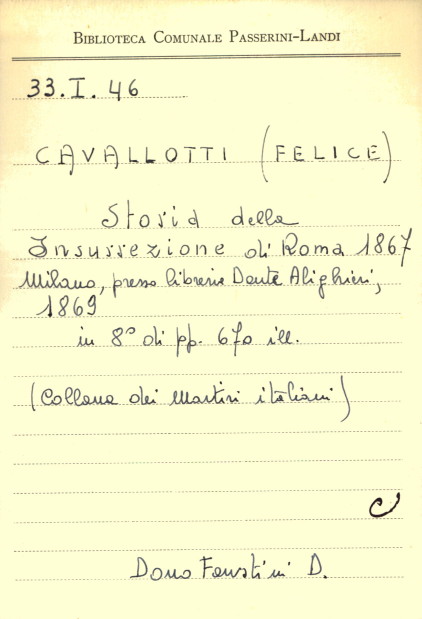 BIBLIOTECA COMUNALE PASSERINI-LANDI
33.I.46
CAVALLOTTI (FELICE)
Storia della
Insurrezione di Roma 1867
Milano, presso libreria Dante Alighieri,
1869
in 8° di pp. 670 ill.
(Collana dei Martiri italiani)
C
Dono Faustini D.